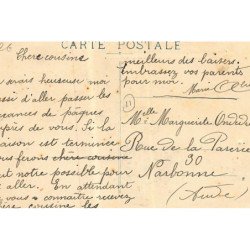 26
CARTE POSTALE
Chère cousine
serais heureuse moi
ssi d'aller passer les
cances de pâques
près de vous. Si la
aison est terminée
us ferons chère cousine
ut notre possible pour
aller. En attendant
vous connaître recevez
chère cousine les
meilleurs des baisers
Embrassez vos parents
pour moi.
Marie
11
Melle Marguerite
Rue de la Parerie
30
Narbonne
Aude